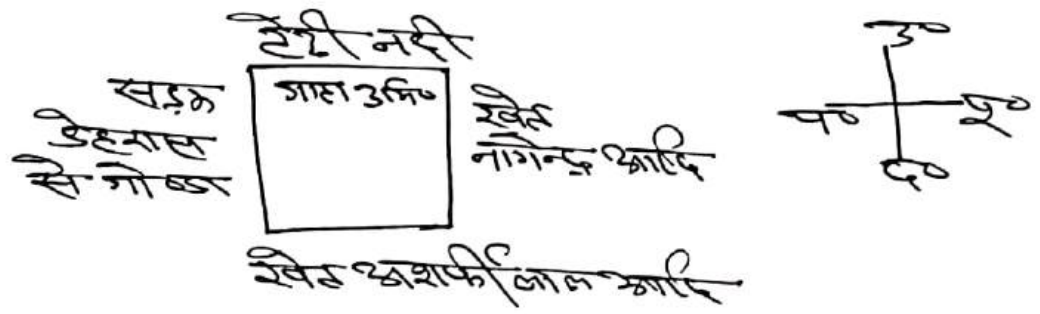 टेढ़ी नदी
सड़क
डेहरास
से गोण्डा
गाटा उमि०
खेत
नागेन्द्र आदि
खेत अशर्फी लाल आदि
उ०
प०
पू०
द०